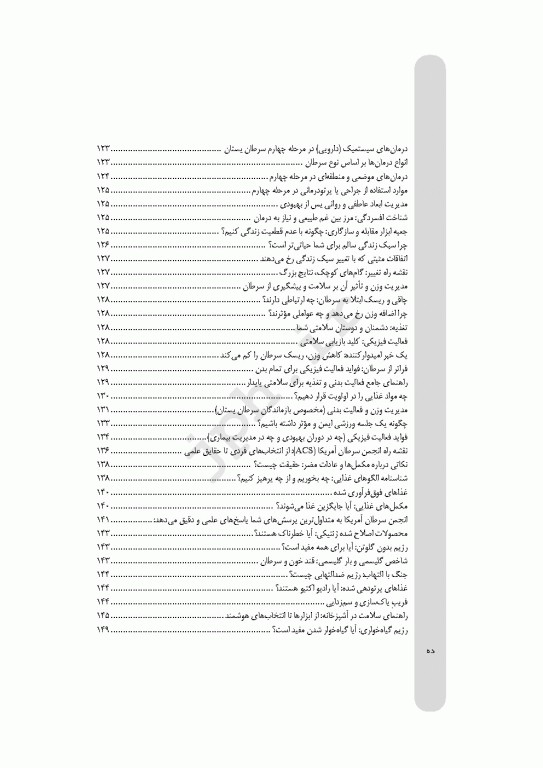 درمان‌های سیستمیک (دارویی) در مرحله چهارم سرطان پستان ............ ۱۲۳
انواع درمان‌ها بر اساس نوع سرطان ............ ۱۲۳
درمان‌های موضعی و منطقه‌ای در مرحله چهارم ............ ۱۲۴
موارد استفاده از جراحی یا پرتودرمانی در مرحله چهارم ............ ۱۲۵
مدیریت ابعاد عاطفی و روانی پس از بهبودی ............ ۱۲۵
شناخت افسردگی: مرز بین غم طبیعی و نیاز به درمان ............ ۱۲۵
جعبه ابزار مقابله و سازگاری: چگونه با عدم قطعیت زندگی کنیم؟ ............ ۱۲۵
چرا سبک زندگی سالم برای شما حیاتی‌تر است؟ ............ ۱۲۶
اتفاقات مثبتی که با تغییر سبک زندگی رخ می‌دهند ............ ۱۲۷
نقشه راه تغییر: گام‌های کوچک، نتایج بزرگ ............ ۱۲۷
مدیریت وزن و تأثیر آن بر سلامت و پیشگیری از سرطان ............ ۱۲۷
چاقی و ریسک ابتلا به سرطان: چه ارتباطی دارند؟ ............ ۱۲۸
چرا اضافه وزن رخ می‌دهد و چه عواملی مؤثرند؟ ............ ۱۲۸
تغذیه: دشمنان و دوستان سلامتی شما ............ ۱۲۸
فعالیت فیزیکی: کلید بازیابی سلامتی ............ ۱۲۸
یک خبر امیدوارکننده: کاهش وزن، ریسک سرطان را کم می‌کند ............ ۱۲۸
فراتر از سرطان: فواید فعالیت فیزیکی برای تمام بدن ............ ۱۲۹
راهنمای جامع فعالیت بدنی و تغذیه برای سلامتی پایدار ............ ۱۲۹
چه مواد غذایی را در اولویت قرار دهیم؟ ............ ۱۳۰
مدیریت وزن و فعالیت بدنی (مخصوص بازماندگان سرطان پستان) ............ ۱۳۱
چگونه یک جلسه ورزشی ایمن و مؤثر داشته باشیم؟ ............ ۱۳۳
فواید فعالیت فیزیکی (چه در دوران بهبودی و چه در مدیریت بیماری) ............ ۱۳۴
نقشه راه انجمن سرطان آمریکا (ACS): از انتخاب‌های فردی تا حقایق علمی ............ ۱۳۶
نکاتی درباره مکمل‌ها و عادات مضر: حقیقت چیست؟ ............ ۱۳۸
شناسنامه الگوهای غذایی: چه بخوریم و از چه پرهیز کنیم؟ ............ ۱۳۸
غذاهای فوق‌فرآوری شده ............ ۱۴۰
مکمل‌های غذایی: آیا جایگزین غذا می‌شوند؟ ............ ۱۴۰
انجمن سرطان آمریکا به متداول‌ترین پرسش‌های شما پاسخ‌های علمی و دقیق می‌دهد: ............ ۱۴۱
محصولات اصلاح شده ژنتیکی: آیا خطرناک هستند؟ ............ ۱۴۳
رژیم بدون گلوتن: آیا برای همه مفید است؟ ............ ۱۴۳
شاخص گلیسمی و بار گلیسمی: قند خون و سرطان ............ ۱۴۳
جنگ با التهاب: رژیم ضدالتهابی چیست؟ ............ ۱۴۴
غذاهای پرتودهی شده: آیا رادیو اکتیو هستند؟ ............ ۱۴۴
فریب پاک‌سازی و سم‌زدایی ............ ۱۴۴
راهنمای سلامت در آشپزخانه: از ابزارها تا انتخاب‌های هوشمند ............ ۱۴۵
رژیم گیاه‌خواری: آیا گیاه‌خوار شدن مفید است؟ ............ ۱۴۹
ده